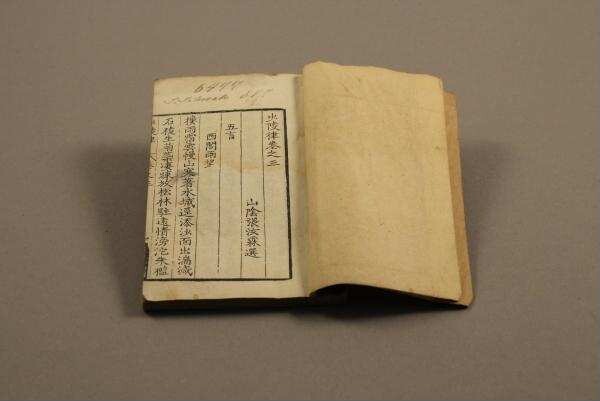 6477
少陵律卷之三
山陰張汝霖選
五言
西閣雨望
樓雨霑雲幔山寒著水城逕添沙面出湍減
石稜生菊蕊凄疎放松林駐遠情滂沱朱檻